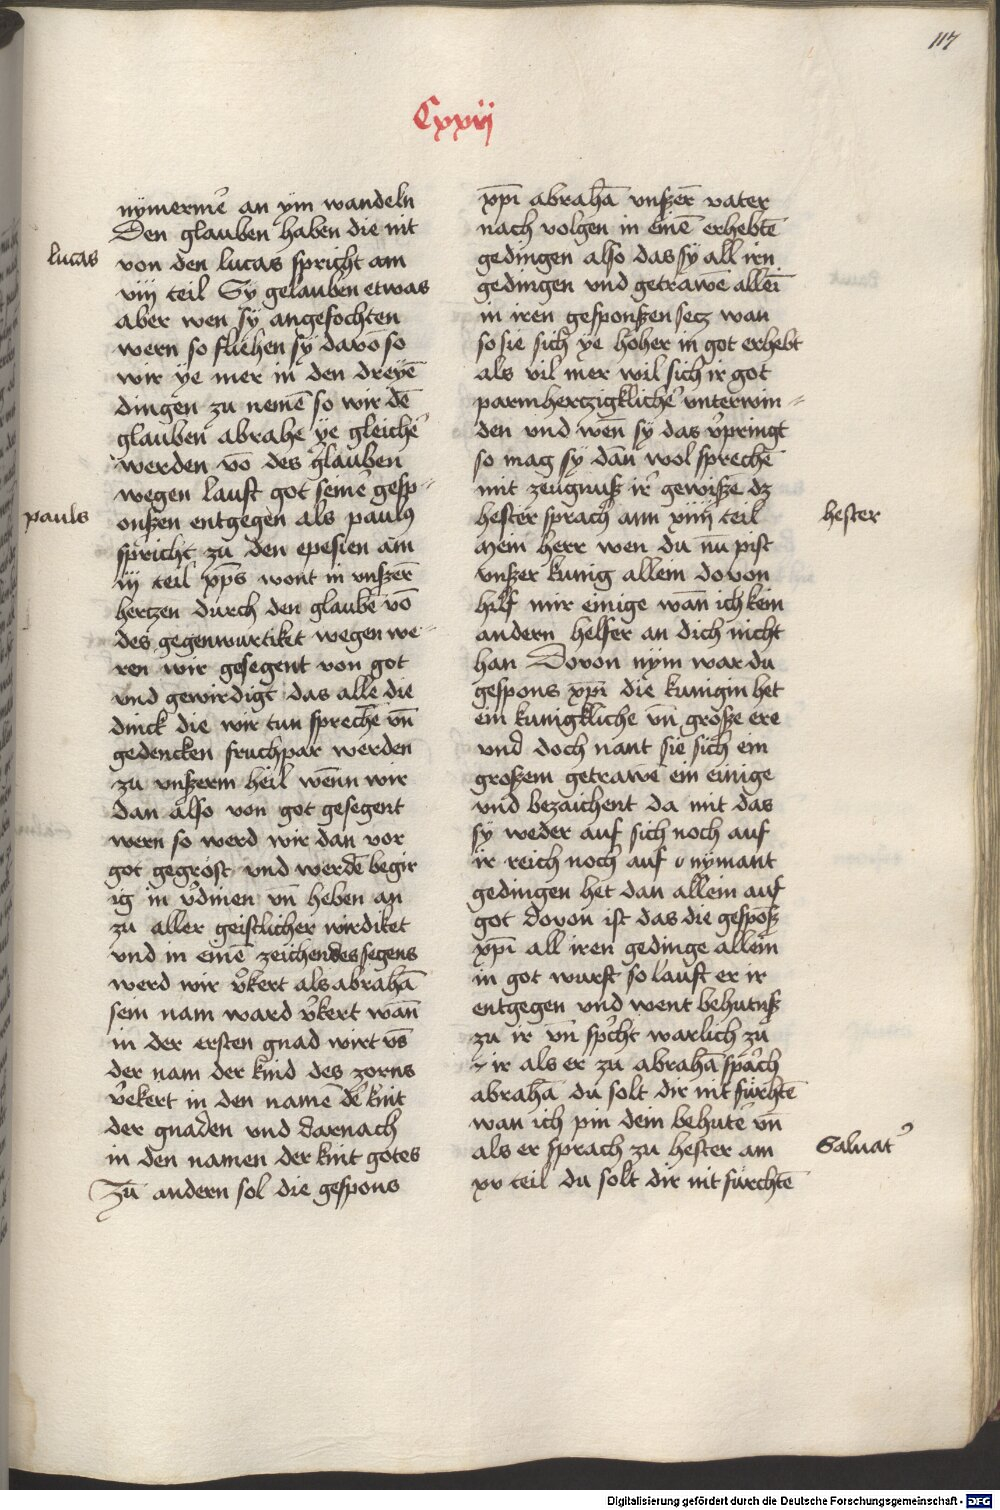 117
Cxxij
nÿmermē an ÿm wandeln
Den glauben haben die nit
lucas
von den lucas spricht am
viij teil Sÿ gelauben etwas
aber wen sÿ angefochten
wern so fliehen sÿ davō so
wir ÿe mer in den dreÿē
dingen zu nemē so wir dē
glauben abrahe ÿe gleichē
werden vō des glauben
wegen lauft got seinē gesp-
pauls
onßen entgegen als paulꝰ
spricht zu den epesien am
iij teil xp̄s wont in vnßerē
hertzen durch den glaubē vō
des gegenwurtiket wegen we-
ren wir gesegent von got
und gewirdigt das alle die
dinck die wir tun sprechē vn̄
gedencken fruchpar werden
zu vnßerm heil wēnn wir
dan also von got gesegent
wern so werd wir dan vor
got gegröst und werdē begir
ig in v̄dinen vn̄ heben an
zu aller geistlicher wirdiket
und in einē zeichen des segens
werd wir v̄kert als abrahā
sein nam ward v̄kert wān
in der ersten gnad wirt vs̄
der nam der kind des zorns
v̄ekert in den namē dē kint
der gnaden vnd darnach
in den namen der kint gotes
Zū andern sol die gespons
xp̄i abrahā vnßerē vater
nach volgen in einē erhebtē
gedingen also das sÿ all irn
gedingen vnd getrawē allei
in iren gesponßen secz wan
so sie sich ÿe höher in got erhebt
als vil mer wil sich ir got
parmhertzigklichē vnterwin-
den vnd wēn sÿ das v̄pringt
so mag sÿ dān wol sprechē
mit zeugnuß ir gewißē dz
hester
hester sprach am xiiij teil
Mein herr wen du nū pist
vnßer kunig allein dovon
hilf mir einige wān ich kein
andern helfer an dich nicht
han Dovon nÿm war du
gespons xp̄i die kunigin het
ein kunigkliche vn̄ große ere
vnd doch nant sie sich ein
großem getrawē ein einige
vnd bezaichent da mit das
sÿ weder auf sich noch auf
ir reich noch auf nÿmant
gedingen het dan allein auf
got dovon ist das die gespoß
xp̄i all iren gedinge allein
in got wurft so lauft er ir
entgegen vnd went behutnß
zu ir vn̄ spricht warlich zu
ir als er zu abrahā sprach
abrahā du solt dir nit fürchtē
wan ich pin dein behutē vn̄
Saluatꝰ
als er sprach zu hester am
xv teil du solt dir nit fürchtē
Digitalisierung gefördert durch die Deutsche Forschungsgemeinschaft - DFG